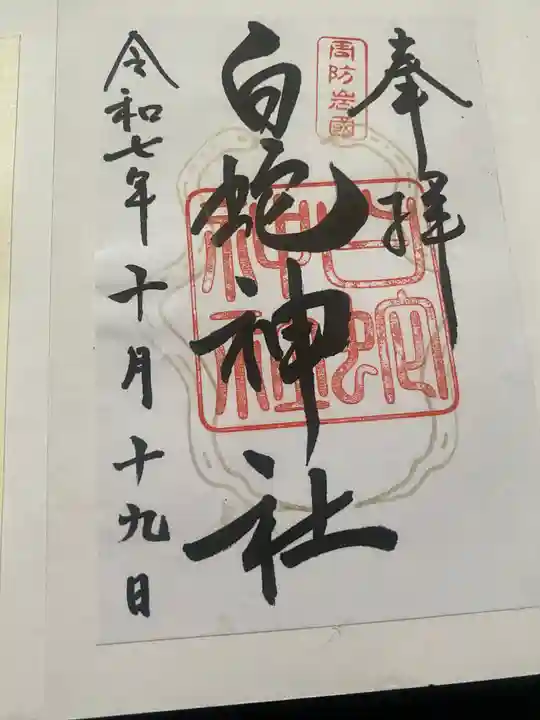 奉拝
周防岩國
白蛇神社
白蛇
神社
令和七年十月十九日